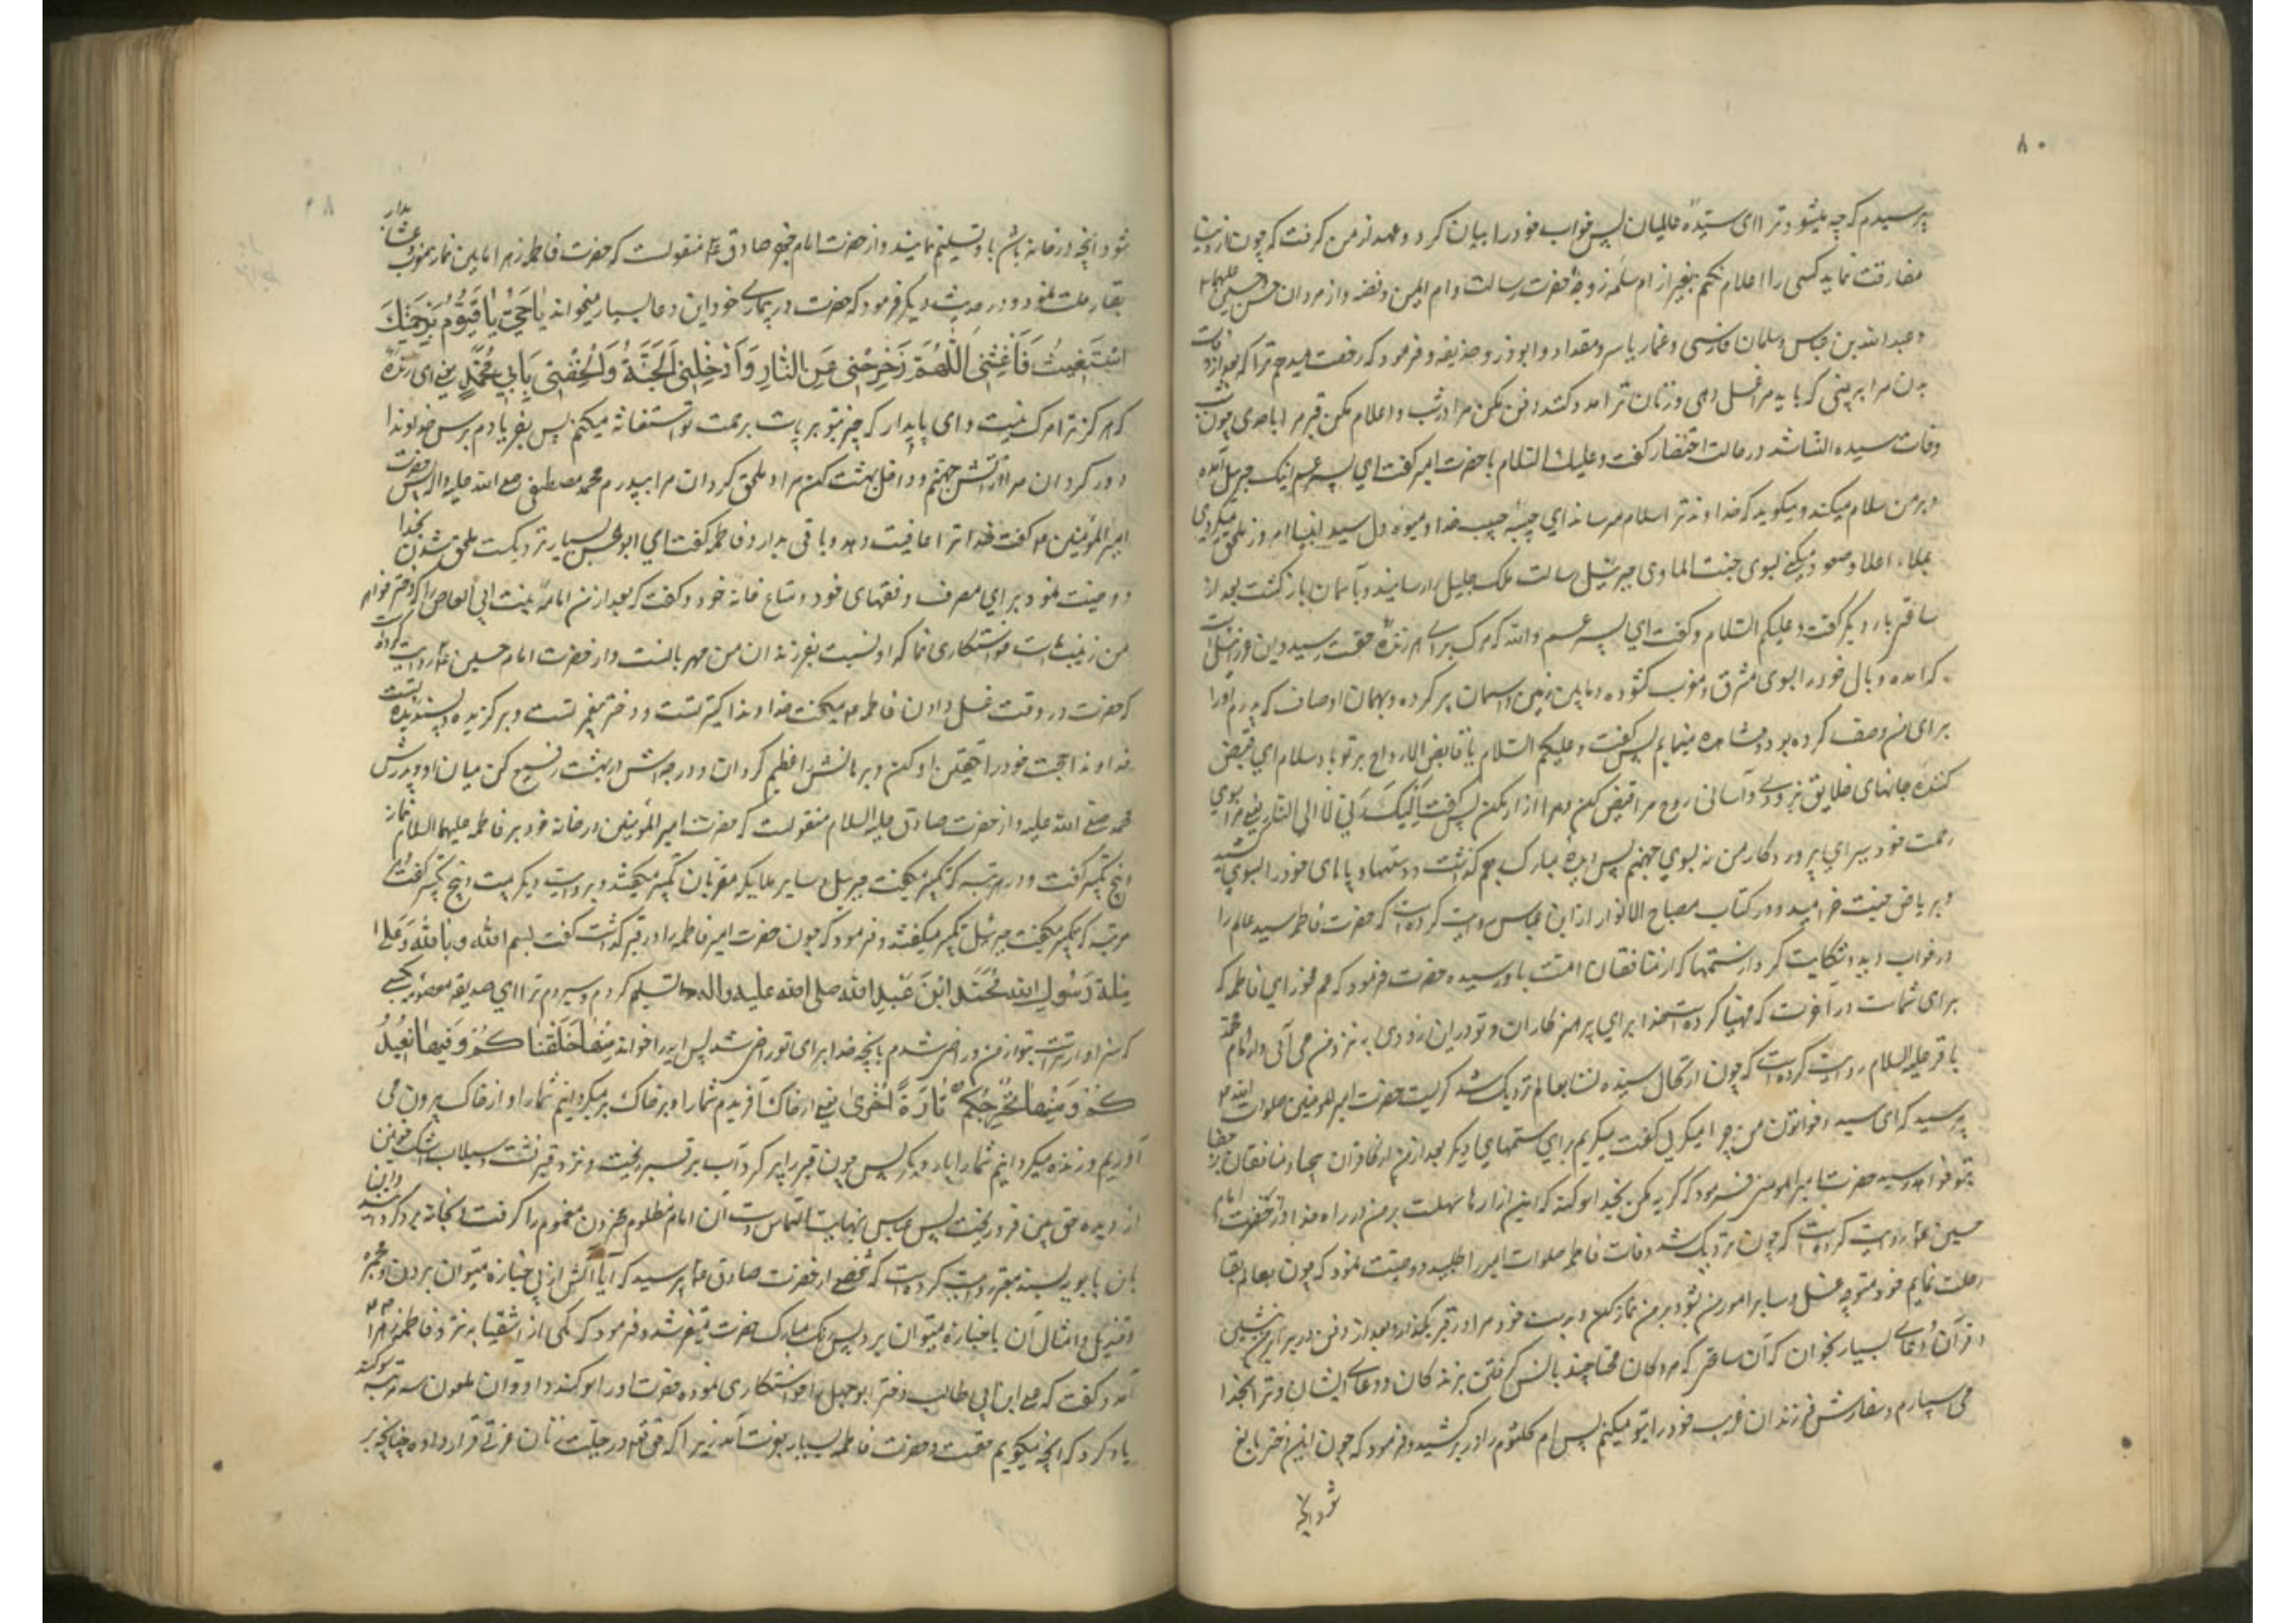 ۸۰
پرسیدم که چه میشود ترا ای سیدهٔ عالمیان پس خواب خود را بیان کرد و عهد از من گرفت که چون از دنیا
مفارقت نماید کسی را اعلام نکنم بغیر از ام سلمه زوجهٔ حضرت رسالت و ام ایمن و فضه و از مردان حسن و حسین علیهما
و عبد الله بن عباس و سلمان فارسی و عمار یاسر و مقداد و ابوذر و حذیفه و فرمود که رخصت میدهم ترا که بعد از وفات
بدن مرا ببینی که باید مرا غسل دهی و زنان ترا مدد کنند دفن مکن مرا در شب و اعلام مکن قبر مرا باحدی چون
وفات سیده النسا شد در حالت احتضار گفت و علیك السلام با حضرت امیر گفت ای پسر عم اینک جبرئیل آمده
و بر من سلام میکند و میگوید که خداوند ترا سلام میرساند ای حبیبهٔ حبیب خدا و میوه دل سید انبیا امروز ملحق میگردی
بملاء اعلا و صعود میکنی بسوی جنت الماوی جبرئیل رسالت ملک جلیل را رسانید و بآسمان بازگشت بعد از
ساعتی بار دیگر گفت و علیکم السلام و گفت ای پسر عم والله که مرگ برای هر زنده حقست رسید و این عزرائیل است
که آمده و بال خود را بسوی مشرق و مغرب گشوده و مابین زمین و آسمان پر کرده و بهمان اوصاف که پدرم او را
برای من وصف کرده بود مشاهده مینمایم پس گفت و علیکم السلام یا قابض الارواح بر تو باد سلام ای قبض
کننده جانهای خلایق بزودی و آسانی روح مرا قبض کن و مرا آزار مکن پس گفت الیك ربی لا الی النار یعنی مرا بسوی
رحمت خود ببر ای پروردگار من نه بسوی جهنم پس دیدهٔ مبارک بر هم گذاشت و دستها و پاهای خود را بسوی کشید
و بریاض جنت خرامید و در کتاب مصباح الانوار از ابن عباس روایت کرده است که حضرت فاطمه سید عالم را
در خواب دید و شکایت کرد از ستمها که از منافقان امت باو رسیده حضرت فرمود که غم مخور ای فاطمه که
برای شماست در آخرت که مهیا کرده است خدا برای پرهیزکاران و تو در این زودی به نزد من می آئی و از امام محمد
باقر علیه السلام روایت کرده است که چون ارتحال سیده نسا بعالم نزدیک شد گریست حضرت امیر المومنین صلوات الله
پرسید که ای سیده و خواتون من چرا میگریی گفت میگریم برای ستمهای دیگر بعد از من از کافران بیحیا و منافقان پرجفا
بتو خواهد رسید حضرت امیر المومنین فرمود که گریه مکن بخدا سوگند که این آزارها سهلست بر من در راه خدا و از حضرت امام
حسین ع روایت کرده است که چون نزدیک شد وفات فاطمه صلوات امیر را طلبید و وصیت نمود که چون بعالم بقا
رحلت نمایم خود متوجه غسل و سایر امور من شو و بر من نماز کن و بدست خود مرا در قبر بگذار و بعد از دفن در برابر من بنشین
و قرآن و دعای بسیار بخوان که آن ساعتی که مردگان محتاجند بانس گرفتن بزندگان و دعای ایشان و ترا بخدا
می سپارم و سفارش فرزندان غریب خود را بتو میکنم پس ام کلثوم را در بر کشید و فرمود که چون این دختر بالغ
شود آنچه
شود آنچه در خانه باشد باو تسلیم نمایند و از حضرت امام جعفر صادق ع منقولست که حضرت فاطمه زهرا مابین نماز مغرب و عشا بدار
بقا رحلت نمود و در حدیث دیگر فرمود که حضرت در بیماری خود این دعا بسیار میخواند یا حی یا قیوم برحمتك
استغیث فاغثنی اللهم زحزحنی من النار و ادخلنی الجنة و الحقنی بابی محمد یعنی ای زنده
که هرگز ترا مرگ نیست و ای پایدار که همه چیز بتو برپاست برحمت تو استغاثه میکنم پس بفریادم برس خداوندا
دور گردان مرا از آتش جهنم و داخل بهشت کن مرا و ملحق گردان مرا بپدرم محمد مصطفی صلی الله علیه و اله پس حضرت
امیر المؤمنین ع گفت خدا ترا عافیت دهد و باقی بدارد فاطمه گفت ای ابو الحسن بسیار نزدیکست ملحق شدن بخدا
و وصیت نمود برای مصرف وقفهای خود و متاع خانه خود و گفت که بعد از من امامه بنت ابی العاص را که دختر خواهر
من زینب است خواستگاری نما که او نسبت بفرزندان من مهربانست و از حضرت امام حسین ع روایت کرده است
که حضرت در وقت غسل دادن فاطمه ع میگفت خداوندا کنیز تست و دختر پیغمبر تست و برگزیده پسندیده تست
خداوندا حجت خود را تلقین او کن و برهانش را عظیم گردان و درجه اش در بهشت رفیع کن میان او و پدرش
محمد صلی الله علیه و از حضرت صادق علیه السلام منقولست که حضرت امیر المؤمنین در خانه خود بر فاطمه علیهما السلام نماز
و پنج تکبیر گفت و در هر مرتبه که تکبیر میگفت جبرئیل و سایر ملایکه مقربان تکبیر میگفتند و بروایت دیگر بیست و پنج تکبیر گفت و در هر
مرتبه که تکبیر میگفت جبرئیل تکبیر میگفتند و فرمود که چون حضرت امیر فاطمه را در قبر گذاشت گفت بسم الله و بالله و علی
ملة رسول الله محمد ابن عبد الله صلی الله علیه واله تسلیم کردم و سپردم ترا ای صدیقه معصومه بکسی
که سزاوارتر است بتو از من و راضی شدم بانچه خدا برای تو راضی شد پس این ایه را خواند منها خلقناکم و فیها نعیدکم
کم و منها نخرجکم تارة اخری یعنی از خاک آفریدم شما را و بر خاک بر میگردانیم شما را و از خاک بیرون می
آوریم و زنده میگردانیم شما را بار دیگر پس چون قبر را پر کرد آب بر قبر ریخت و نزد قبر نشست و سیلاب اشک خونین
از دیده حق بین فرو ریخت پس عباس بنهایت التماس دست آن امام مظلوم محزون مغموم را گرفت و بخانه برگردانید و ابن
بابویه بسند معتبر روایت کرده است که شخصی از حضرت صادق ع پرسید که آیا آتش از پی جنازه میتوان بردن و مجمره
و قندیل و امثال آن با جنازه میتوان برد پس رنگ مبارک حضرت متغیر شد و فرمود که یکی از اشقیا به نزد فاطمه زهرا ع
آمد و گفت که علی ابن ابی طالب دختر ابو جهل را خواستگاری نموده حضرت او را سوگند داد و آن ملعون سه مرتبه سوگند
یاد کرد که آنچه میگویم حقست و حضرت فاطمه بسیار بغیرت آمد زیرا که حق تعالی در جبلت زنان غیرتی قرار داده چنانچه بر